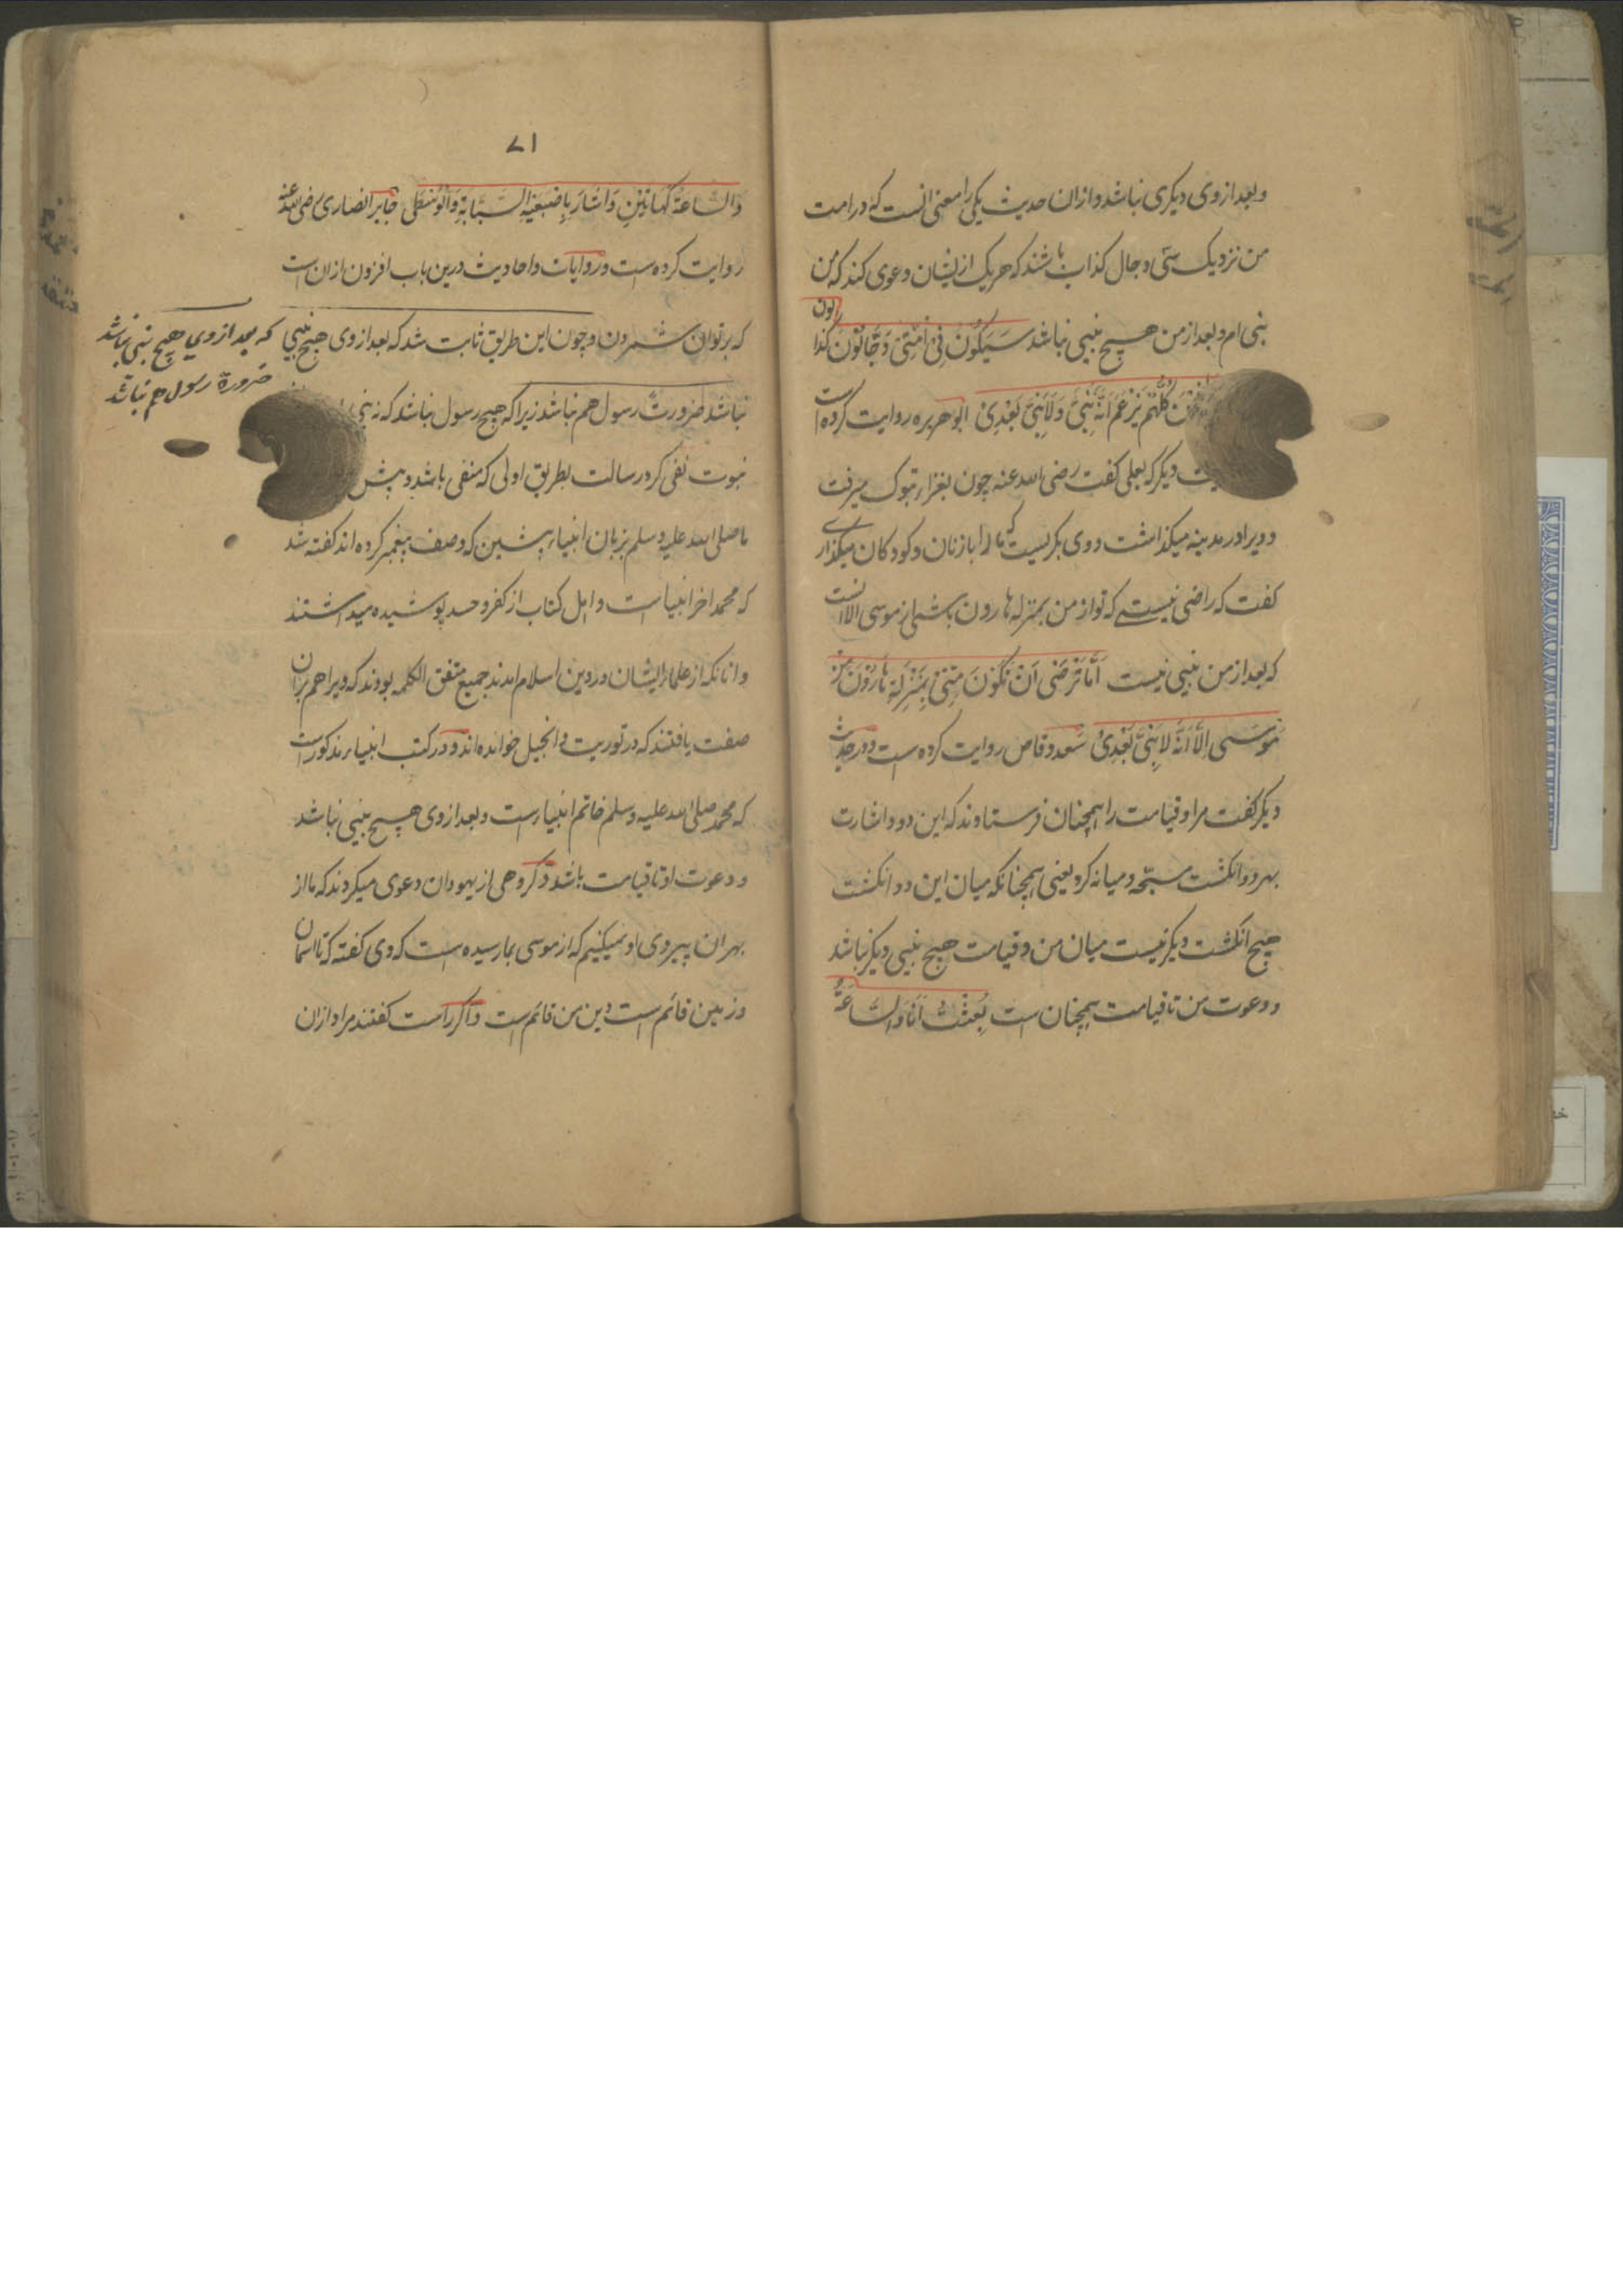 و بعد از وی دیکری نباشد و ازان حدیث یکی را معنی انست که در امت
من نزدیک سی دجال کذاب باشند که هریک ازیشان دعوی کند که من
نبی ام و بعد از من هیچ نبیی نباشد سَیَکُونُ فِی اُمَّتِی دَجَّالُونَ کذا
بون
کُلُّهُم یَزعَمُ اَنَّهُ نَبِیٌّ وَلَا نَبِیَّ بَعدِی ابو هریره روایت کرده است
دیکر که بعلی کفت رضی الله عنه چون بغزاء تبوک میرفت
و ویرا در مدینه میکذاشت و وی بکریست که ما را با زنان و کودکان میکذاری
کفت که راضی نیستی که تو از من بمنزله هارون باشی از موسی الا انست
که بعد از من نبیی نیست اَمَا تَرضَی اَن تَکُونَ مِنِّی بِمَنزِلَةِ هَارُونَ مِن
مُوسَی اِلَّا اَنَّهُ لَا نَبِیَّ بَعدِی سعد وقاص روایت کرده است و در حدیث
دیکر کفت مرا و قیامت را همچنان فرستاوند که این دو و اشارت
بهر دو انکشت مسبّحه و میانه کرد یعنی همچنانکه میان این دو انکشت
هیچ انکشت دیکر نیست میان من و قیامت هیچ نبیی دیکر نباشد
و دعوت من تا قیامت همچنان است بُعِثتُ اَنَا وَالسَّاعَةُ
۷۱
وَالسَّاعَةُ کَهَاتَینِ وَاَشَارَ بِاِصبَعَیهِ السَّبَّابَةِ وَالوُسطَی جابر انصاری رضی الله عنه
روایت کرده است و روایات و احادیث درین باب افزون ازان است
که برتوان شمردن و چون این طریق ثابت شد که بعد از وی هیچ نبیی
که بعد از وی هیچ نبی نباشد
ضرورة رسول هم نباشد
نباشد ضرورت رسول هم نباشد زیرا که هیچ رسول نباشد که نه نبی
نبوت نفی کرد رسالت بطریق اولی که منفی باشد و پیش
ما صلی الله علیه وسلم بزبان انبیاء پیشین که وصف پیغمبر کرده اند کفته شد
که محمد اخر انبیا است و اهل کتاب از کفر و حسد پوشیده میداشتند
و انانکه از علماء ایشان در دین اسلام امدند جمیع متفق الکلمه بودند که ویرا هم بران
صفت یافتند که در توریت و انجیل خوانده اند و در کتب انبیاء مذکور است
که محمد صلی الله علیه وسلم خاتم انبیاء است و بعد از وی هیچ نبیی نباشد
و دعوت او تا قیامت باشد و کروهی از یهودان دعوی میکردند که ما از
بهر ان پیروی او نمیکنیم که از موسی بما رسیده است که وی کفته که تا اسمان
و زمین قائم است دین من قائم است و اکر راست کفتند مراد ازان